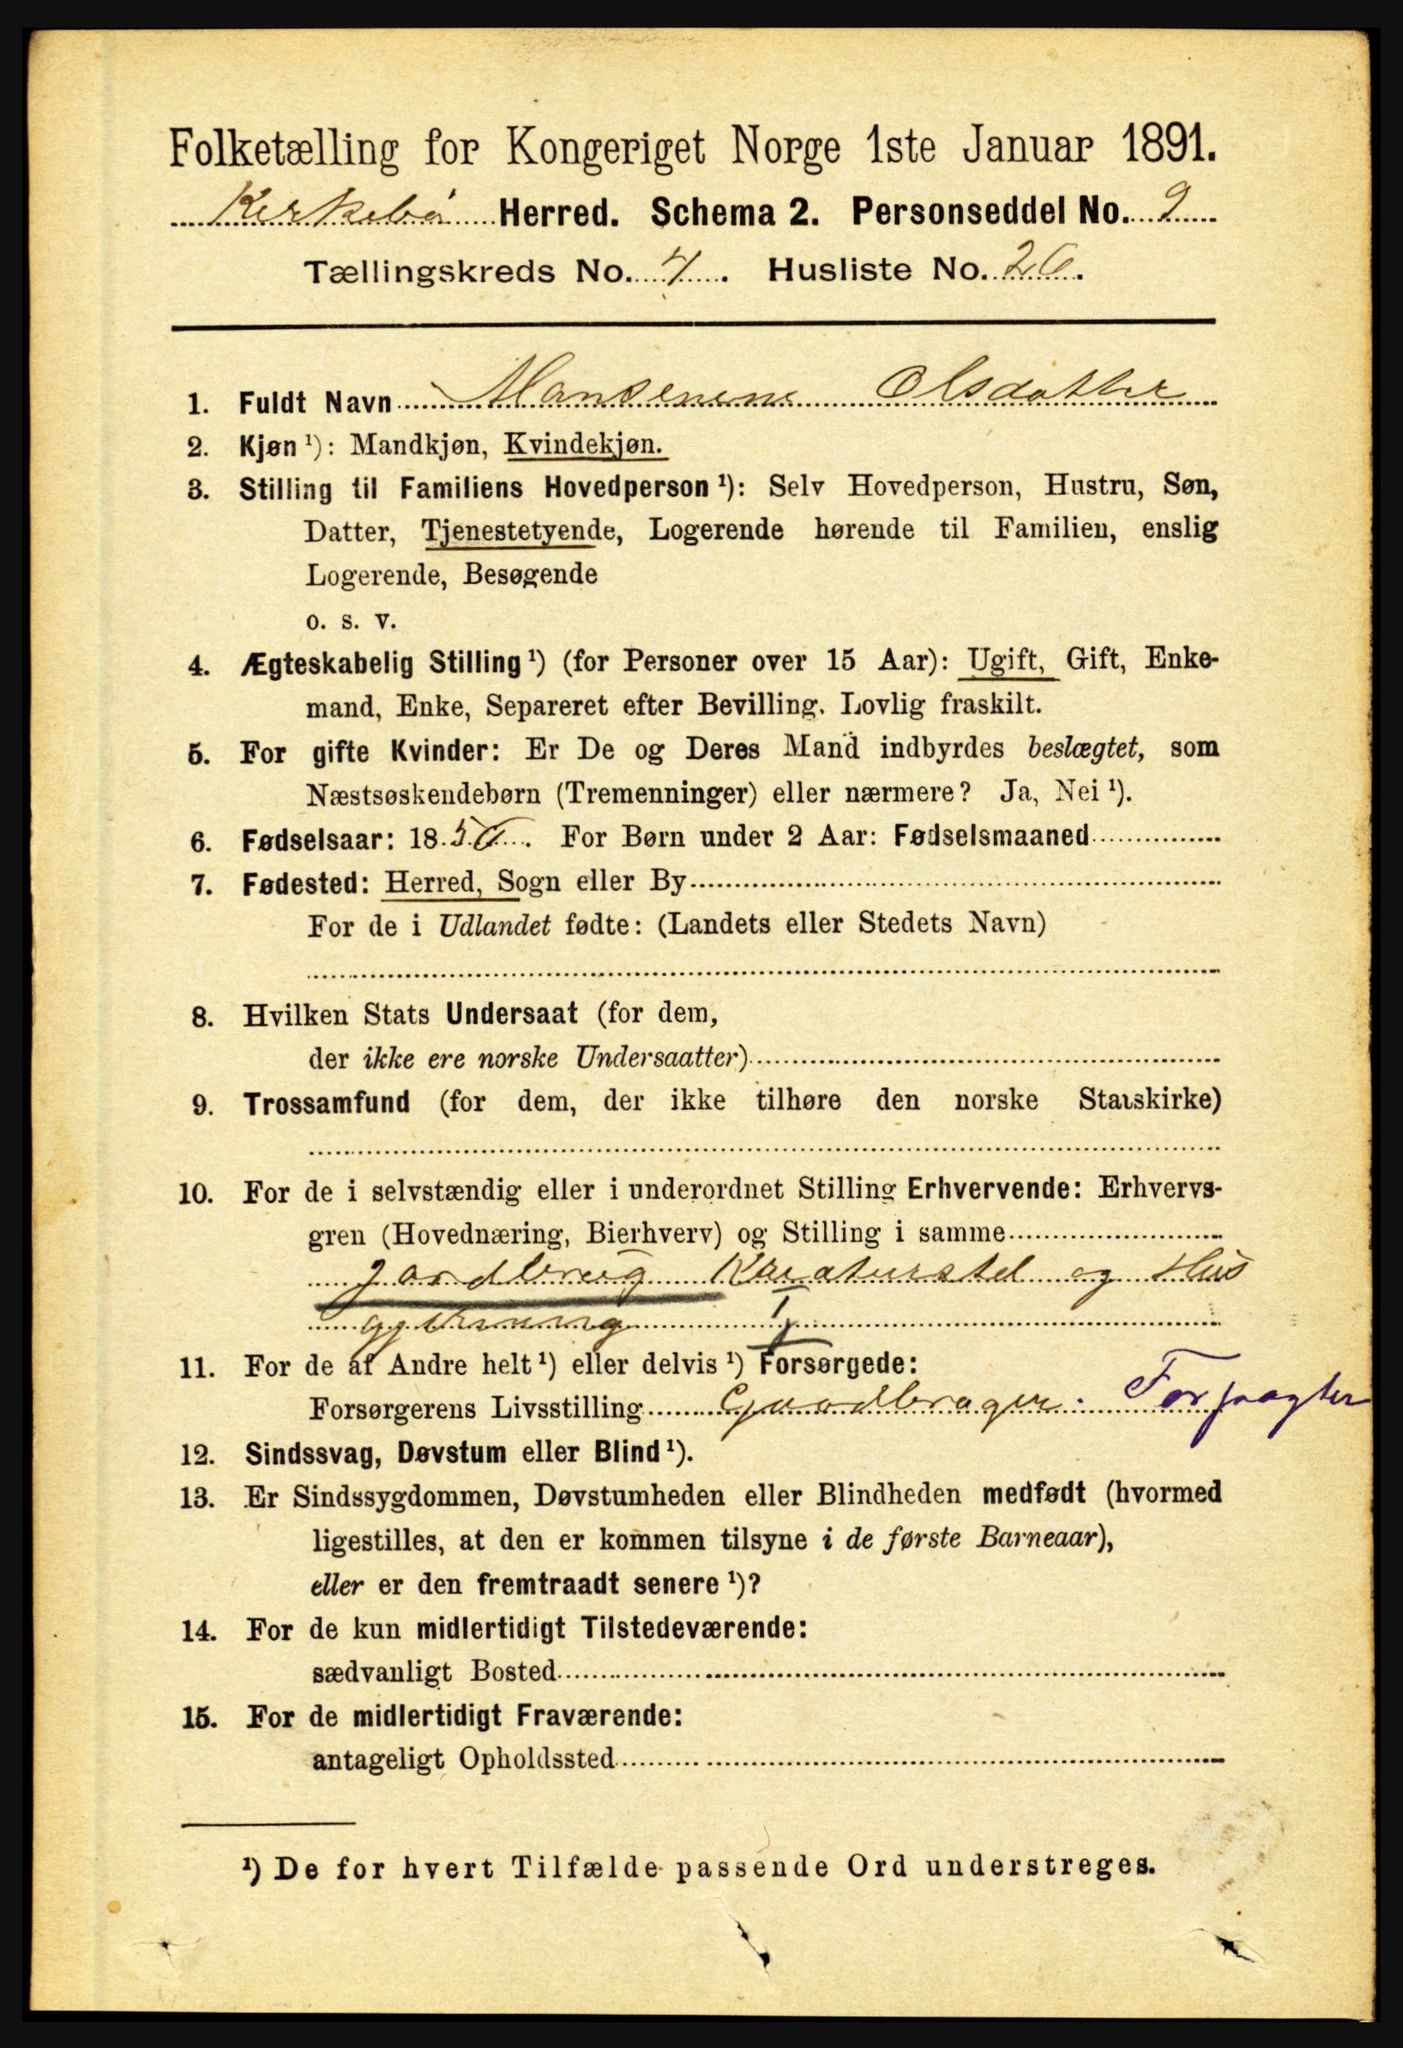 Folketælling for Kongeriget Norge 1ste Januar 1891.
Kirkebø Herred. Schema 2. Personseddel No. 9
Tællingskreds No. 4. Husliste No. 26.
1. Fuldt Navn Hansenene Olsdatter
2. Kjøn ¹): Mandkjøn, Kvindekjøn.
3. Stilling til Familiens Hovedperson ¹): Selv Hovedperson, Hustru, Søn,
Datter, Tjenestetyende, Logerende hørende til Familien, enslig
Logerende, Besøgende
o. s. v.
4. Ægteskabelig Stilling ¹) (for Personer over 15 Aar): Ugift, Gift, Enke-
mand, Enke, Separeret efter Bevilling. Lovlig fraskilt.
5. For gifte Kvinder: Er De og Deres Mand indbyrdes beslægtet, som
Næstsøskendebørn (Tremenninger) eller nærmere? Ja, Nei ¹).
6. Fødselsaar: 1856. For Børn under 2 Aar: Fødselsmaaned
7. Fødested: Herred, Sogn eller By
For de i Udlandet fødte: (Landets eller Stedets Navn)
8. Hvilken Stats Undersaat (for dem,
der ikke ere norske Undersaatter)
9. Trossamfund (for dem, der ikke tilhøre den norske Statskirke)
10. For de i selvstændig eller i underordnet Stilling Erhvervende: Erhvervs-
gren (Hovednæring, Bierhverv) og Stilling i samme
Jordbrug Kreaturstel og Hus
gjerning
11. For de af Andre helt ¹) eller delvis ¹) Forsørgede:
Forsørgerens Livsstilling Gaardbruger. Forpagter
12. Sindssvag, Døvstum eller Blind ¹).
13. Er Sindssygdommen, Døvstumheden eller Blindheden medfødt (hvormed
ligestilles, at den er kommen tilsyne i de første Barneaar),
eller er den fremtraadt senere ¹)?
14. For de kun midlertidigt Tilstedeværende:
sædvanligt Bosted
15. For de midlertidigt Fraværende:
antageligt Opholdssted
¹) De for hvert Tilfælde passende Ord understreges.